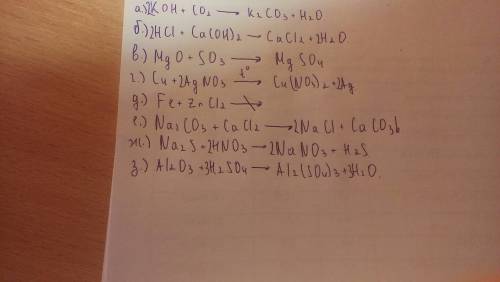 а.) 2KOH + CO2 ⟶ K2CO3 + H2O
б.) 2HCl + Ca(OH)2 ⟶ CaCl2 + 2H2O
в.) MgO + SO3 ⟶ MgSO4
г.) Cu + 2AgNO3 t° ⟶ Cu(NO3)2 + 2Ag
д.) Fe + ZnCl2 ↛
е.) Na2CO3 + CaCl2 ⟶ 2NaCl + CaCO3↓
ж.) Na2S + 2HNO3 ⟶ 2NaNO3 + H2S
з.) Al2O3 + 3H2SO4 ⟶ Al2(SO4)3 + 3H2O